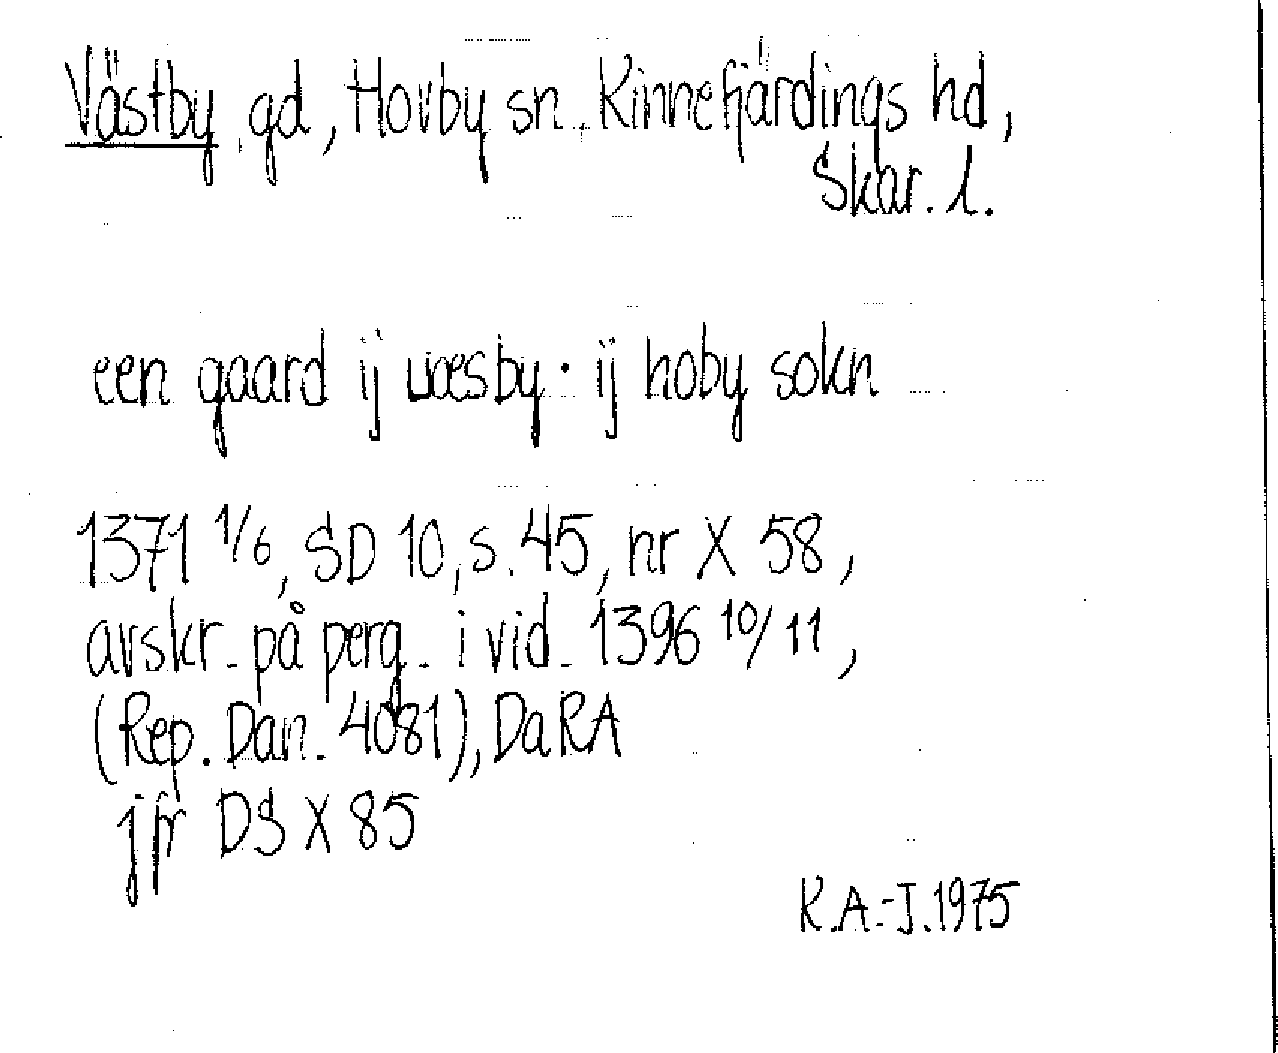 Västby gd, Hovby sn. Kinnefjärdings hd,
Skar. l.
een gaard ij wæsby · ij hoby sokn
1371 1/6, SD 10, s. 45, nr X 58,
avskr. på perg. i vid. 1396 10/11,
(Rep. Dan. 4081), DaRA
jfr DS X 85
K.A.-J. 1975